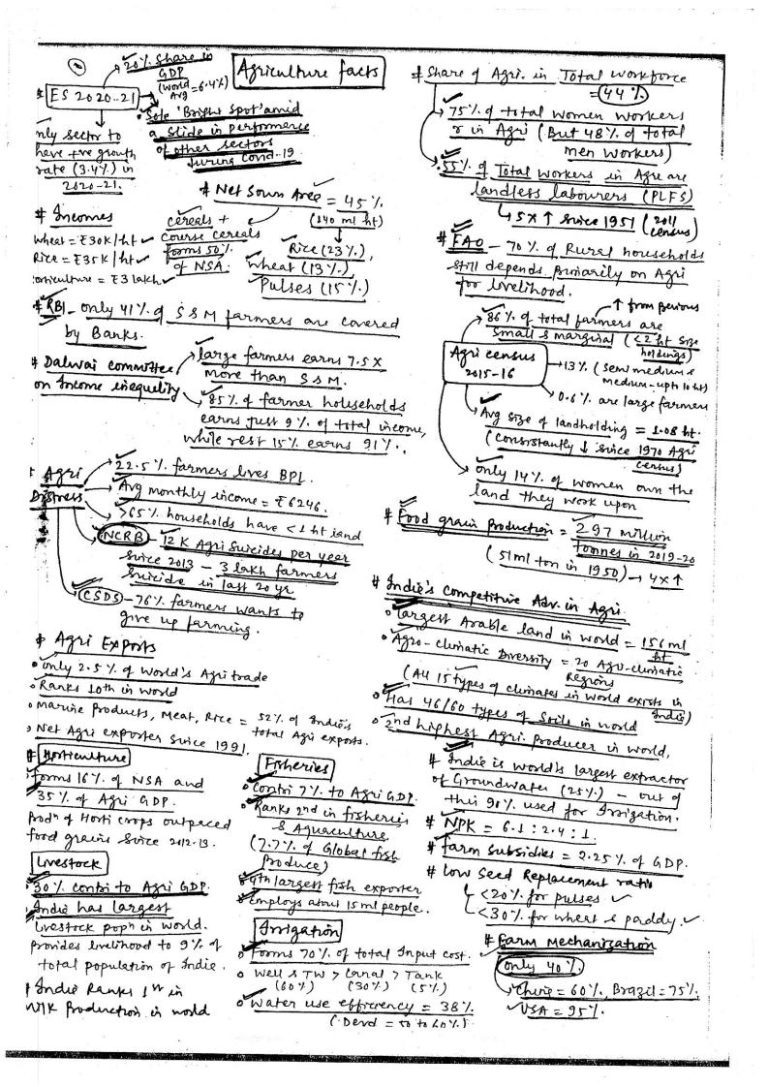 Agriculture facts
20% share in
GDP
(World
Avg = 6.4%)
ES 2020-21
Sole 'Bright Spot' amid
a slide in performence
of other sectors
during Covid-19
nly sector to
have +ve growth
rate (3.4%) in
2020-21.
# Net Sown Area = 45%
(140 ml ht)
cereals +
course cereals
forms 50%
of NSA.
Rice (23%),
wheat (13%)
Pulses (15%)
# Incomes
wheat = ₹30K/ht
Rice = ₹35K/ht
orticulture = ₹3 lakh
# RBI - only 41% of S&M farmers are covered
by Banks.
# Dalwai committee
on Income inequility
large farmers earns 7.5x
more than S&M.
85% of farmer holseholds
earns just 9% of total income,
while rest 15% earns 91%.
Agri
Distress
22.5% farmers lives BPL.
Avg monthly income = ₹6246.
>65% households have <1 ht land
NCRB - 12K Agri suicides per year
since 2013 - 3 lakh farmers
suicide in last 20 yr
CSDS - 76% farmers wants to
give up farming.
# Agri Exports
• only 2.5% of world's Agri trade
• Ranks 10th in world
• Marine Products, Meat, Rice = 52% of India's
total Agri exports.
• Net Agri exporter since 1991.
# Horticulture
forms 16% of NSA and
35% of Agri GDP.
Prodn of Horti crops outpaced
food grains since 2012-13.
Livestock
30% contri to Agri GDP.
India has largest
livestock popn in world.
Provides livelihood to 9% of
total population of India.
India Ranks 1st in
Milk Production in world
Fisheries
• Contri 7% to Agri GDP.
Ranks 2nd in fisheries
& Aquaculture
(7.7% of Global fish
Produce)
• 4th largest fish exporter
• Employs about 15 ml people.
Irrigation
• Forms 70% of total Input cost.
• Well & TW > Canal > Tank
(60%) (30%) (5%)
• Water use efficiency = 38%
(Devd = 50 to 60%)
# Share of Agri. in Total workforce
= 44%
75% of total women workers
r in Agri (But 48% of total
men workers)
55% of Total workers in Agri are
landless labourers (PLFS)
5x ↑ since 1951 (2011
census)
# FAO - 70% of Rural households
still depends primarily on Agri
for livelihood.
Agri census
2015-16
↑ from previous
86% of total farmers are
small & marginal (<2 ht size
holdings)
13% (semi medium &
medium - upto 10 ht)
0.6% are large farmers
Avg size of landholding = 1.08 ht.
(consistantly ↓ since 1970 Agri
census)
only 14% of women own the
land they work upon
# Food grain Production = 297 million
tonnes in 2019-20
(51 ml ton in 1950) → 4x ↑
# India's Competitive Adv. in Agri.
• largest Arable land in world = 156 ml
ht
• Agro-climatic Diversity = 20 Agro-climatic
Regions
(All 15 types of climates in world exists in
India)
• Has 46/60 types of Soils in world
• 2nd highest Agri. Producer in world.
# India is world's largest extractor
of Groundwater (25%) - out of
this 90% used for Irrigation.
# NPK = 6.1 : 2.4 : 1.
# farm subsidies = 2.25% of GDP.
# Low Seed Replacement ratio
<20% for pulses
<30% for wheat & paddy.
# Farm Mechanization
only 40%
China = 60%, Brazil = 75%
USA = 95%.